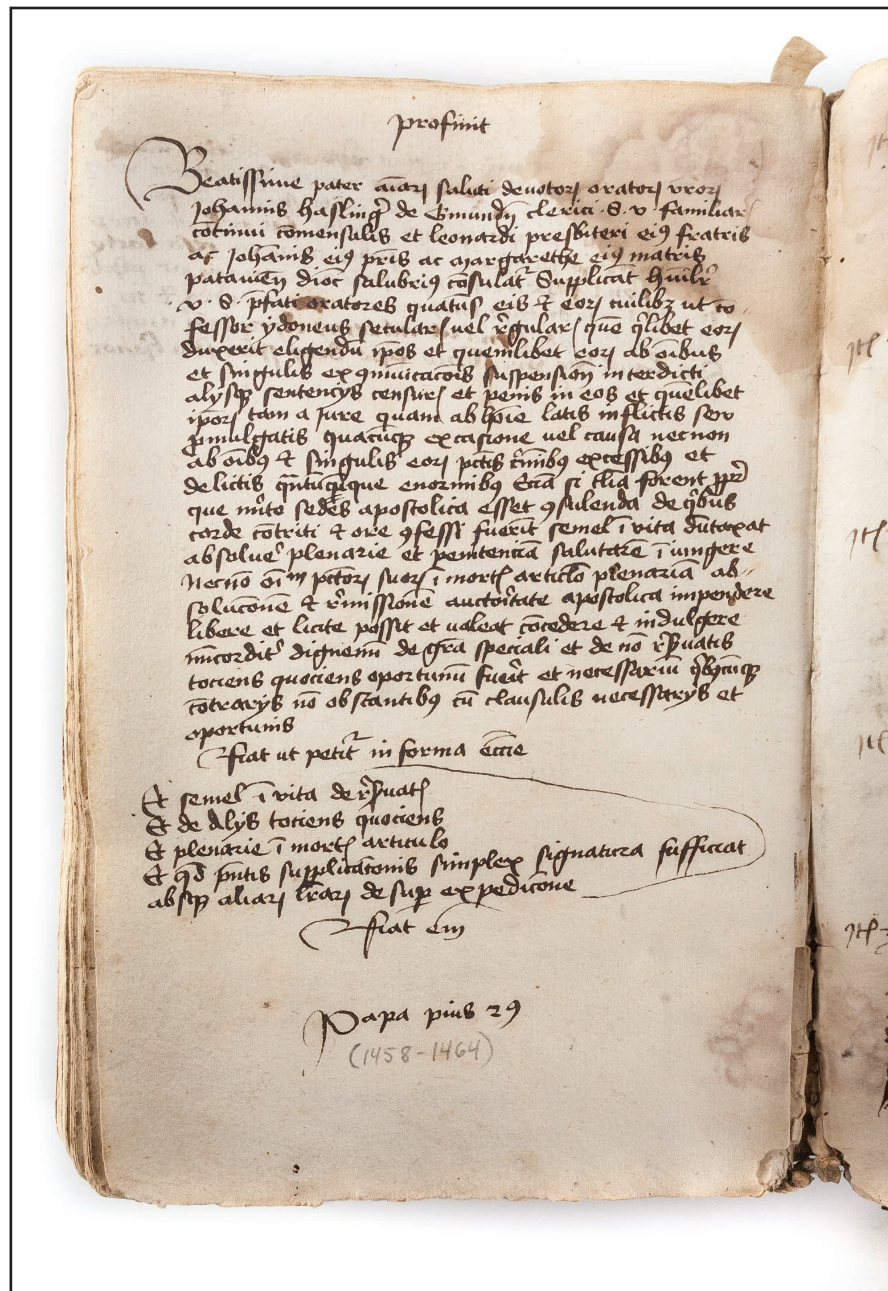 profinit
Beatissime pater aīarꝫ saluti deuotorꝫ oratorꝫ vrorꝫ
Johannis hasling᷑ de Gmundn̄ clerici S. v. familiarꝭ
cōtinui cōmensalis et leonardi presbiteri eiꝰ fratris
ac Johānis eiꝰ pr̄is ac margarethe eiꝰ matris
patauień dioc̄ salubriꝰ cōsulat᷑ Supplicāt hūilr̄
v. S. p̄fati oratores quatūs eis ⁊ eorꝫ cuilibꝫ ut cō-
fessor ydoneus secularꝭ uel rēgularꝭ quē q̄libet eorꝫ
duxerit eligendū ip̄os et quemlibet eorꝫ ab oībus
et singulis exꝯmūicacōis suspensiōn interdicti
alysqꝫ sentencys censurꝭ et penis in eos et quēlibet
ip̄orꝫ tam a Jure quam ab hoīe latis inflictis seu
ꝓmulgatis quacūqꝫ excasione uel causa necnon
ab oībꝰ ⁊ singulis eorꝫ pctīs cr̄inibꝰ excessibꝰ et
delictis qn̄tūcūqꝫque enormibꝰ Eciā si tl̄ia forent ꝓpt᷑
que mr̄ito sedes apostolica esset ꝯsulenda de q̄bus
corde cōtriti ⁊ ore ꝯfessi fuerīt semel ī vita dūtaxat
absolue᷑ plenarie et penitenciā salutarē īiungere
Necnō oīm pctōrꝫ suorꝫ ī mortꝭ articl̄o plenariā ab-
solucōnē ⁊ rēmissionē auctōritate apostolica impendere
libere et licite possit et ualeat cōcedere ⁊ indulgere
mīcordit᷑ dignemī de grā speciali et de nō rēs̄uatis
tociens quociens oportunū fuerīt et necessariū q̄bꝰcūqꝫ
cōtrarys nō obstantibꝰ cū clausulis necessarys et
oportunis
Fiat ut petit᷑ in forma ecc̄ie
Et semel ī vita de rēs̄uatꝭ
Et de Alys tociens quociens
Et plenarie ī mortꝭ articulo
Et qd̄ pn̄tis supplicatōnis simplex signatura sufficiat
absqꝫ aliarꝫ lr̄arꝫ desuꝑ expedicōne
Fiat em̄
Papa pius 2ꝰ
(1458-1464)